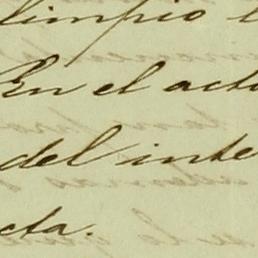 limpio
En el actu
del inte
cta.